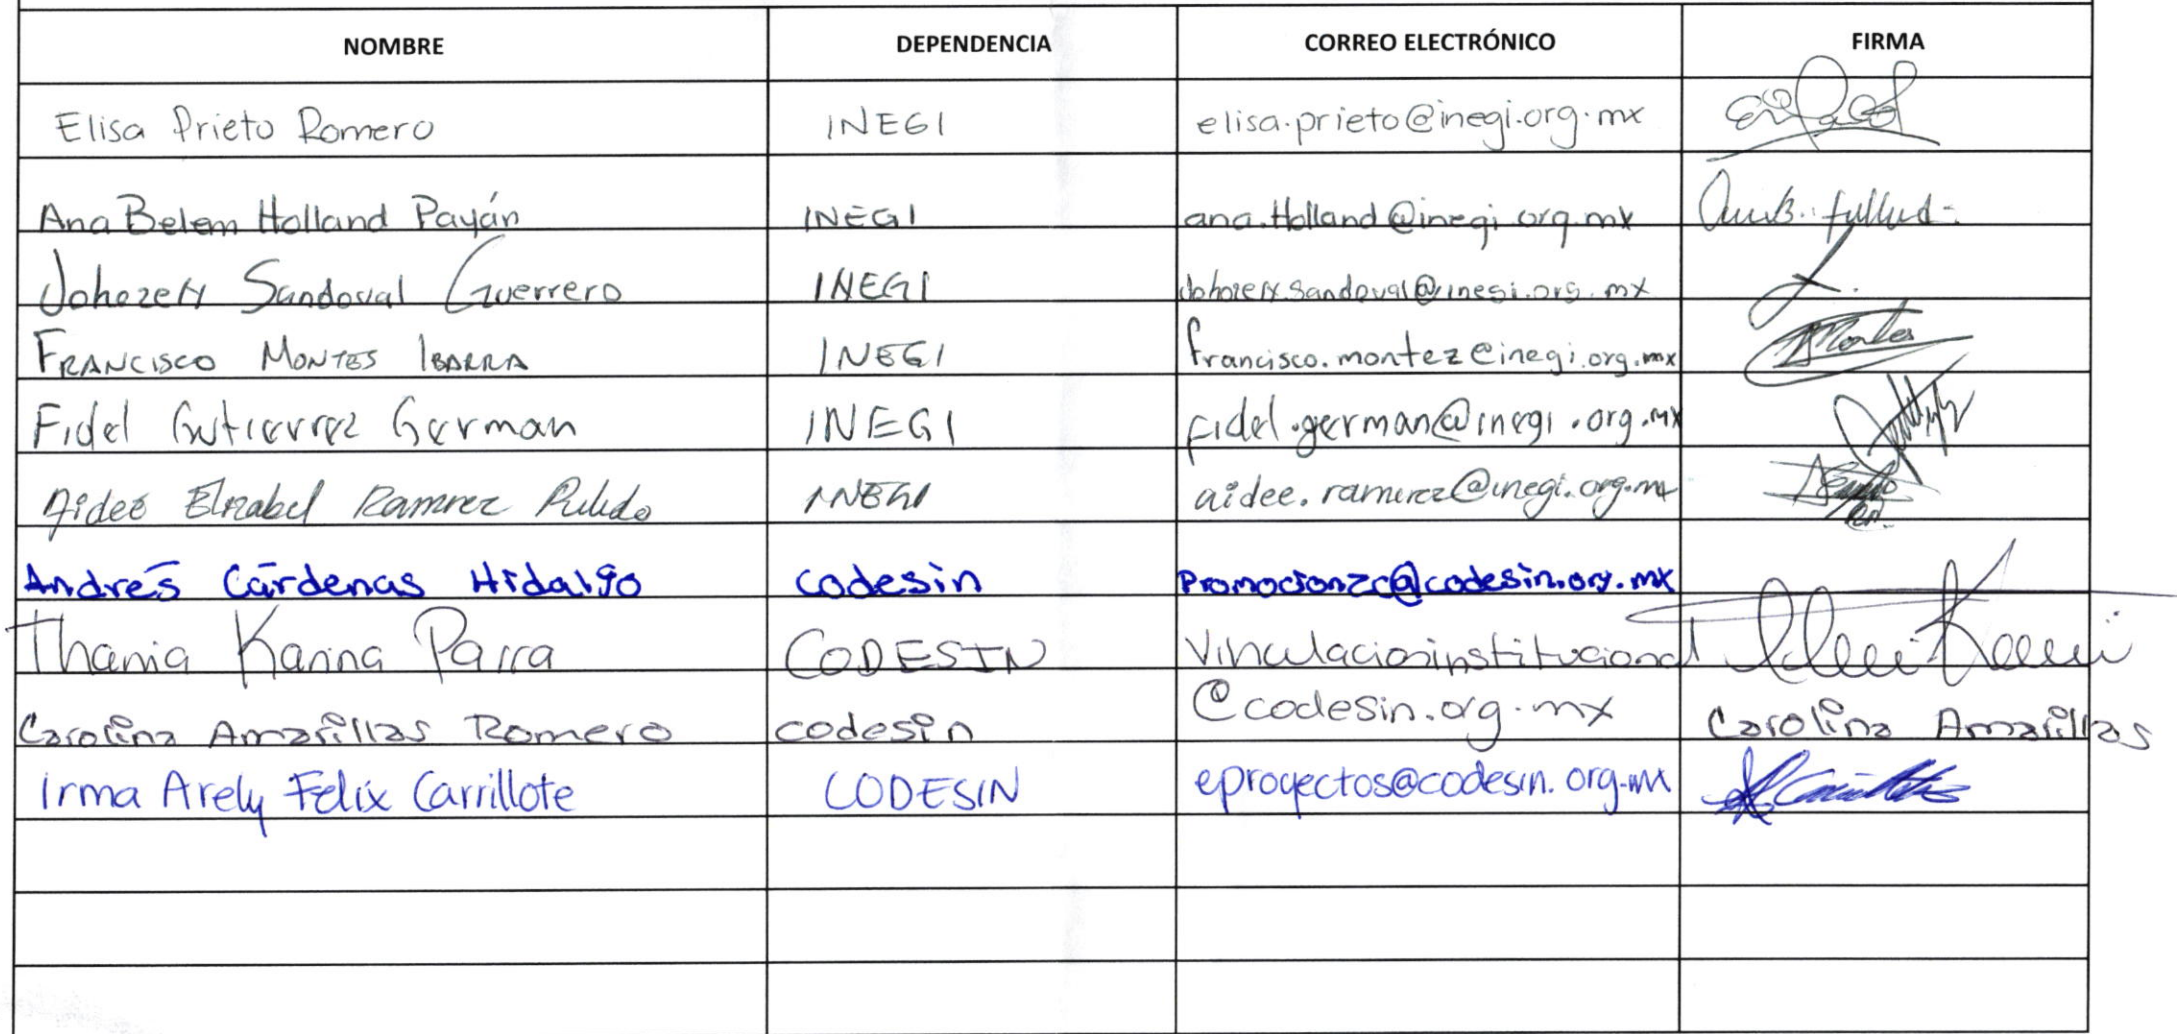 NOMBRE DEPENDENCIA CORREO ELECTRÓNICO FIRMA
Elisa Prieto Romero INEGI elisa.prieto@inegi.org.mx
Ana Belem Holland Payán INEGI ana.Holland@inegi.org.mx
Johozely Sandoval Guerrero INEGI Johozely.Sandoval@inegi.org.mx
FRANCISCO MONTES IBARRA INEGI francisco.montez@inegi.org.mx Montes
Fidel Gutierrez German INEGI fidel.german@inegi.org.mx
Aidee Elizabel Ramirez Pulido INEGI aidee.ramirez@inegi.org.mx
Andrés Cárdenas Hidalgo codesin Promocionzc@codesin.org.mx
Thania Karina Parra CODESIN Vinculacioninstitucional
Carolina Amarillas Romero codesin @codesin.org.mx Carolina Amarillas
Irma Arely Felix Carrillote CODESIN eproyectos@codesin.org.mx